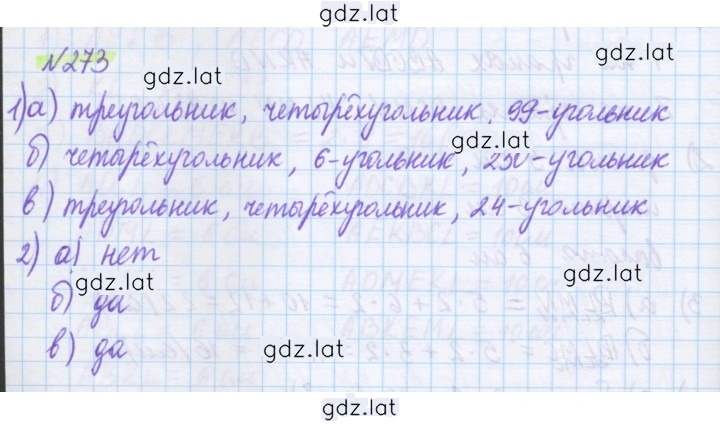 gdz.lat
N273
gdz.lat
1) а) треугольник, четырёхугольник, 99-угольник
gdz.lat
б) четырёхугольник, 6-угольник, 250-угольник
в) треугольник, четырёхугольник, 24-угольник
2) а) нет
gdz.lat
gdz.lat
б) да
в) да
gdz.lat
gdz.lat